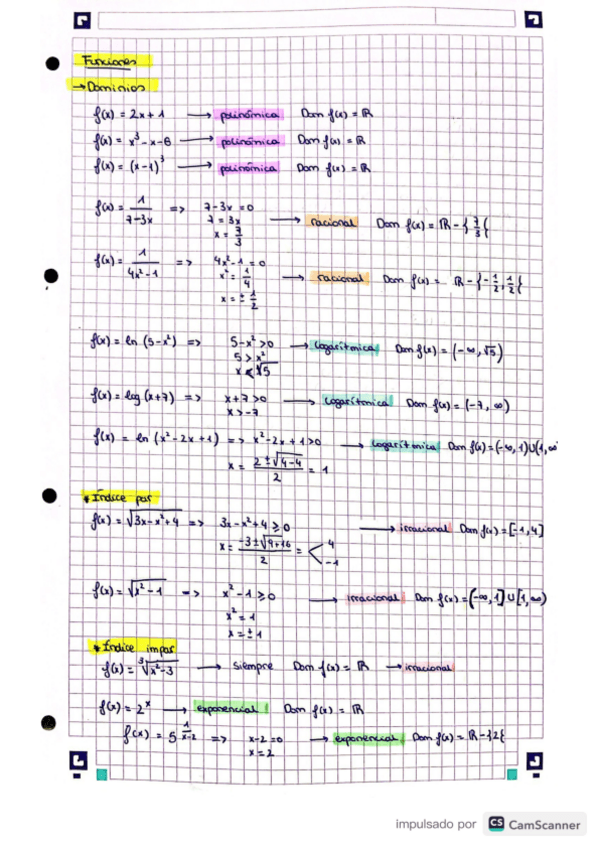 Funciones
→ Dominios
f(x) = 2x + 1 → polinómica Dom f(x) = ℝ
f(x) = x³ - x - 6 → polinómica Dom f(x) = ℝ
f(x) = (x-1)³ → polinómica Dom f(x) = ℝ
f(x) = 1/(7-3x) => 7-3x = 0
7 = 3x → racional Dom f(x) = ℝ - {7/3{
x = 7/3
f(x) = 1/(4x²-1) => 4x²-1 = 0
x² = 1/4 → racional Dom f(x) = ℝ - {-1/2, 1/2{
x = ± 1/2
f(x) = ln (5-x²) => 5-x² > 0 → logarítmica Dom f(x) = (-∞, √5)
5 > x²
x < √5
f(x) = log (x+7) => x+7 > 0 → logarítmica Dom f(x) = (-7, ∞)
x > -7
f(x) = ln (x²-2x+1) => x²-2x+1 > 0 → logarítmica Dom f(x) = (-∞, 1) U (1, ∞
x = (2 ± √(4-4))/2 = 1
* Índice par
f(x) = √(3x-x²+4) => 3x-x²+4 ⩾ 0 → irracional Dom f(x) = [-1, 4]
x = (-3 ± √(9+16))/2 = < 4
-1
f(x) = √(x²-1) => x²-1 ⩾ 0 → irracional Dom f(x) = (-∞, 1] U [1, ∞)
x² = 1
x = ± 1
* Índice impar
f(x) = ³√(x²-3) → siempre Dom f(x) = ℝ → irracional
f(x) = 2ˣ → exponencial Dom f(x) = ℝ
f(x) = 5^(1/(x-2)) => x-2 = 0 → exponencial Dom f(x) = ℝ - {2{
x = 2
impulsado por CS CamScanner